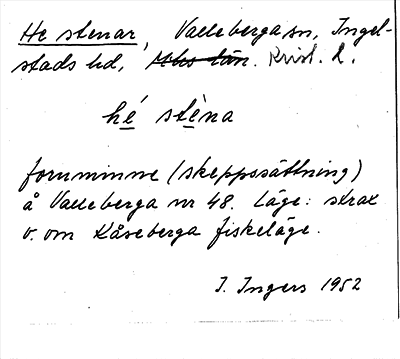 He stenar, Valleberga sn, Ingel-
stads hd, Mhs län. Krist. L.
hé stèna
fornminne (skeppssättning)
å Valleberga nr 48. Läge: strax
v. om Kåseberga fiskeläge.
I. Ingers 1952